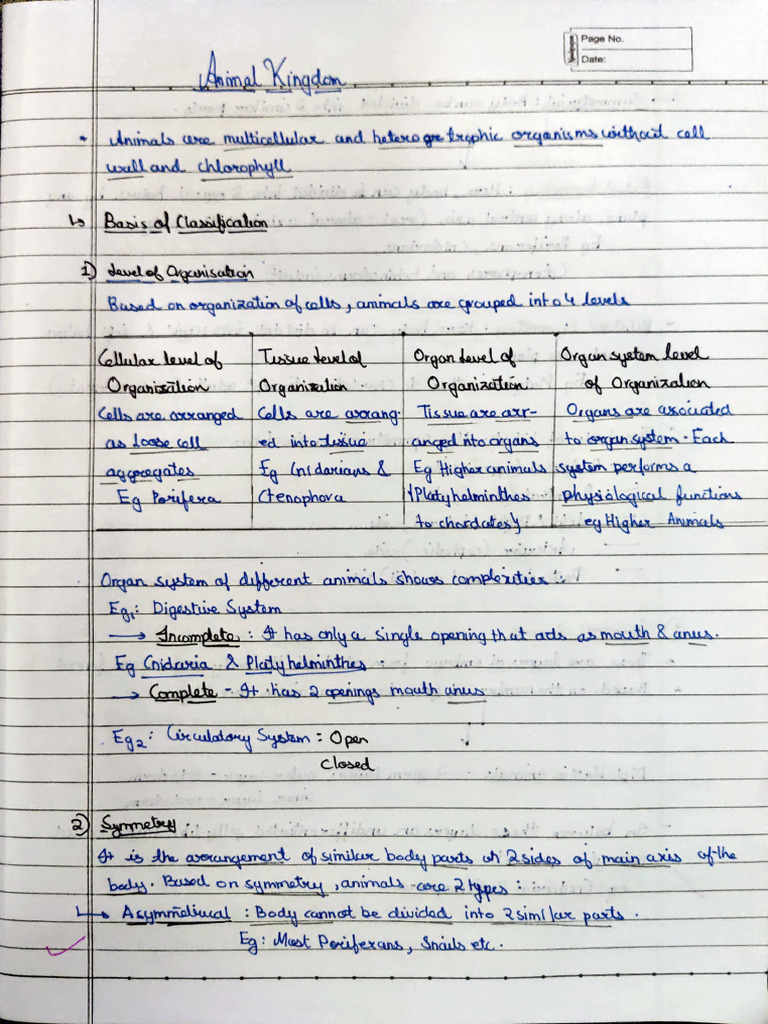 Page No.
Date:
Animal Kingdom
* Animals are multicellular and heterogrtrophic organisms without cell
wall and chlorophyll
↳ Basis of Classification
1) Level of Organisation
Based on organization of cells, animals are grouped into 4 levels
Cellular level of Organization
Cells are arranged as loose cell aggregates
Eg Porifera
Tissue level of Organization
Cells are arranged into tissue
Eg Cnidarians & Ctenophora
Organ level of Organization
Tissue are arr-
anged into organs
Eg Higher animals
{Platyhelminthes
to chordates}
Organ system level
of Organization
Organs are asociated
to organ system. Each
system performs a
physiological functions
eg Higher Animals
Organ system of different animals shows complexities:
Eg1: Digestive System
→ Incomplete: It has only a single opening that acts as mouth & anus.
Eg Cnidaria & Platyhelminthes
→ Complete - It has 2 openings mouth anus
Eg2: Circulatory System: Open
Closed
2) Symmetry:
It is the arrangement of similar body parts on 2 sides of main axis of the
body. Based on symmetry, animals are 2 types:
↳ Asymmetrical: Body cannot be divided into 2 similar parts.
Eg: Most Poriferans, Snails etc.